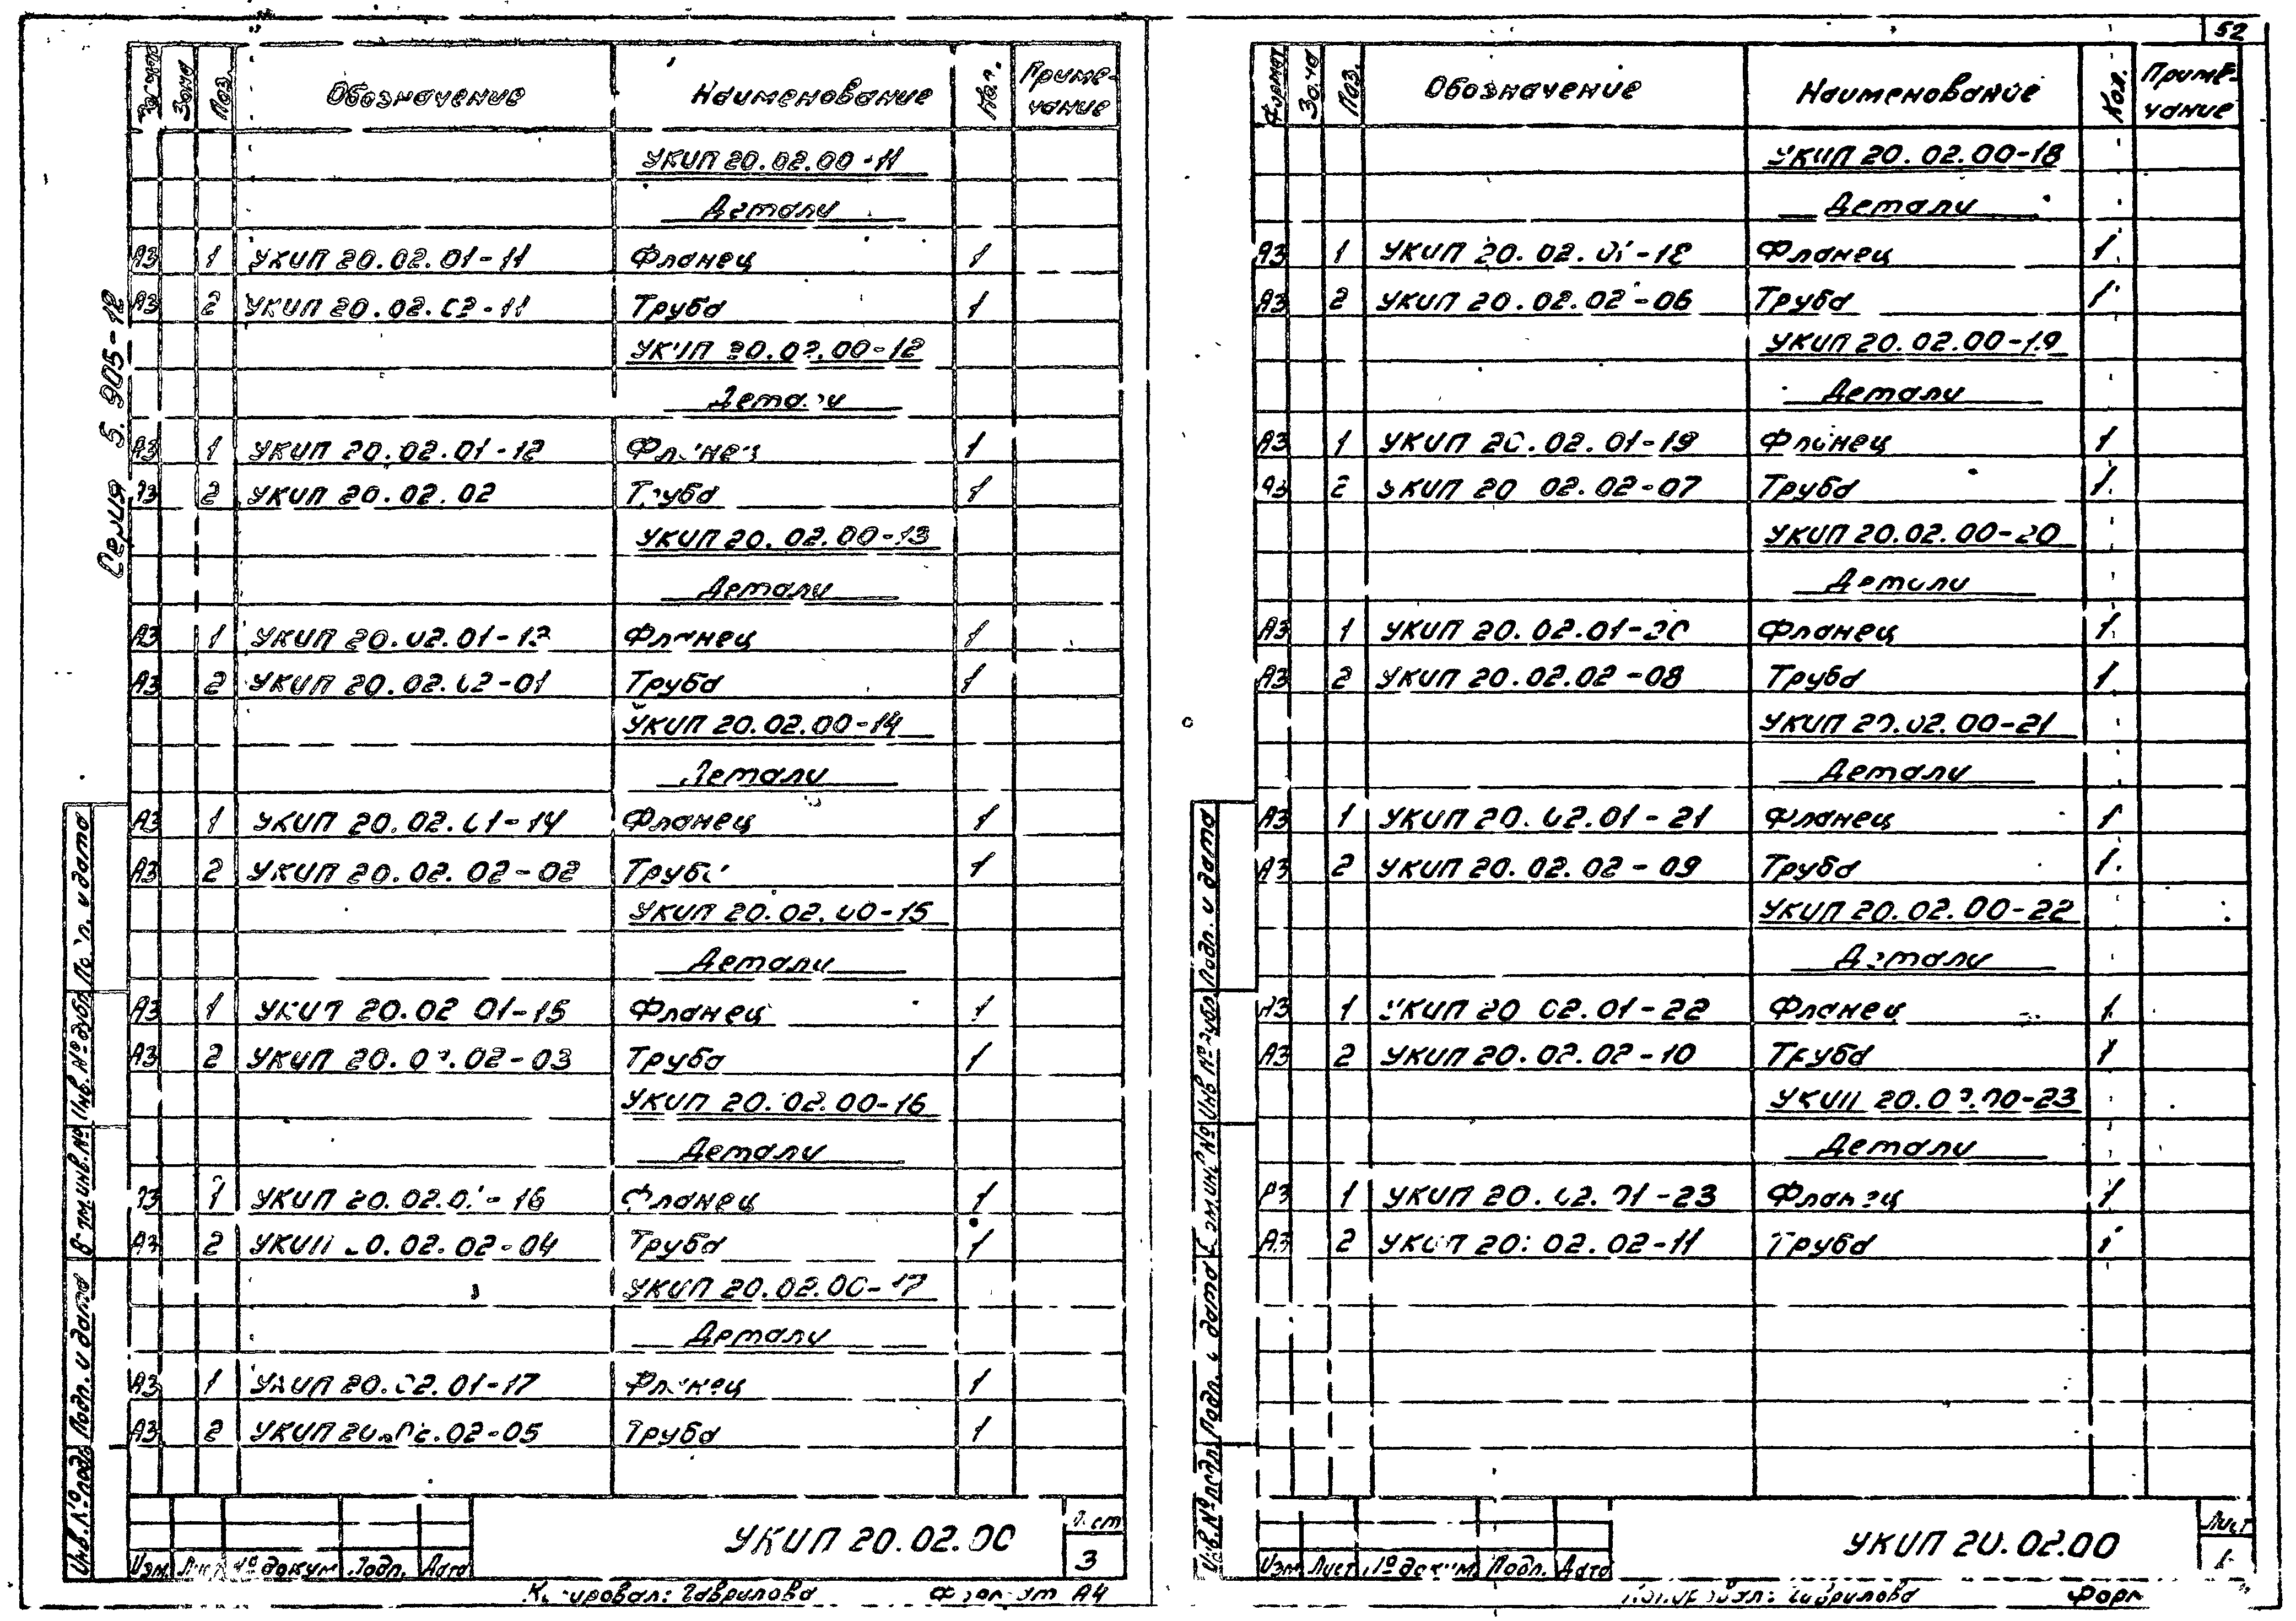 Серия 5.905-12
Зона Поз. Обозначение Наименование Кол. Примечание
УКИП 20.02.00-11
Детали
А3 1 УКИП 20.02.01-11 Фланец 1
А3 2 УКИП 20.02.02-11 Труба 1
УКИП 20.02.00-12
Детали
А3 1 УКИП 20.02.01-12 Фланец 1
А3 2 УКИП 20.02.02 Труба 1
УКИП 20.02.00-13
Детали
А3 1 УКИП 20.02.01-13 Фланец 1
А3 2 УКИП 20.02.02-01 Труба 1
УКИП 20.02.00-14
Детали
А3 1 УКИП 20.02.01-14 Фланец 1
А3 2 УКИП 20.02.02-02 Труба 1
УКИП 20.02.00-15
Детали
А3 1 УКИП 20.02.01-15 Фланец 1
А3 2 УКИП 20.02.02-03 Труба 1
УКИП 20.02.00-16
Детали
А3 1 УКИП 20.02.01-16 Фланец 1
А3 2 УКИП 20.02.02-04 Труба 1
УКИП 20.02.00-17
Детали
А3 1 УКИП 20.02.01-17 Фланец 1
А3 2 УКИП 20.02.02-05 Труба 1
Инв. № подл. Подп. и дата Взам. инв. № Инв. № дубл. Подп. и дата
Изм. Лист № докум. Подп. Дата
УКИП 20.02.00
Лист
3
Копировал: Гаврилова Формат А4
52
Формат Зона Поз. Обозначение Наименование Кол. Примечание
УКИП 20.02.00-18
Детали
А3 1 УКИП 20.02.01-18 Фланец 1
А3 2 УКИП 20.02.02-06 Труба 1
УКИП 20.02.00-19
Детали
А3 1 УКИП 20.02.01-19 Фланец 1
А3 2 УКИП 20.02.02-07 Труба 1
УКИП 20.02.00-20
Детали
А3 1 УКИП 20.02.01-20 Фланец 1
А3 2 УКИП 20.02.02-08 Труба 1
УКИП 20.02.00-21
Детали
А3 1 УКИП 20.02.01-21 Фланец 1
А3 2 УКИП 20.02.02-09 Труба 1
УКИП 20.02.00-22
Детали
А3 1 УКИП 20.02.01-22 Фланец 1
А3 2 УКИП 20.02.02-10 Труба 1
УКИП 20.02.00-23
Детали
А3 1 УКИП 20.02.01-23 Фланец 1
А3 2 УКИП 20.02.02-11 Труба 1
Инв. № подл. Подп. и дата Взам. инв. № Инв. № дубл. Подп. и дата
Изм. Лист № докум. Подп. Дата
УКИП 20.02.00
Лист
Копировал: Гаврилова Форм